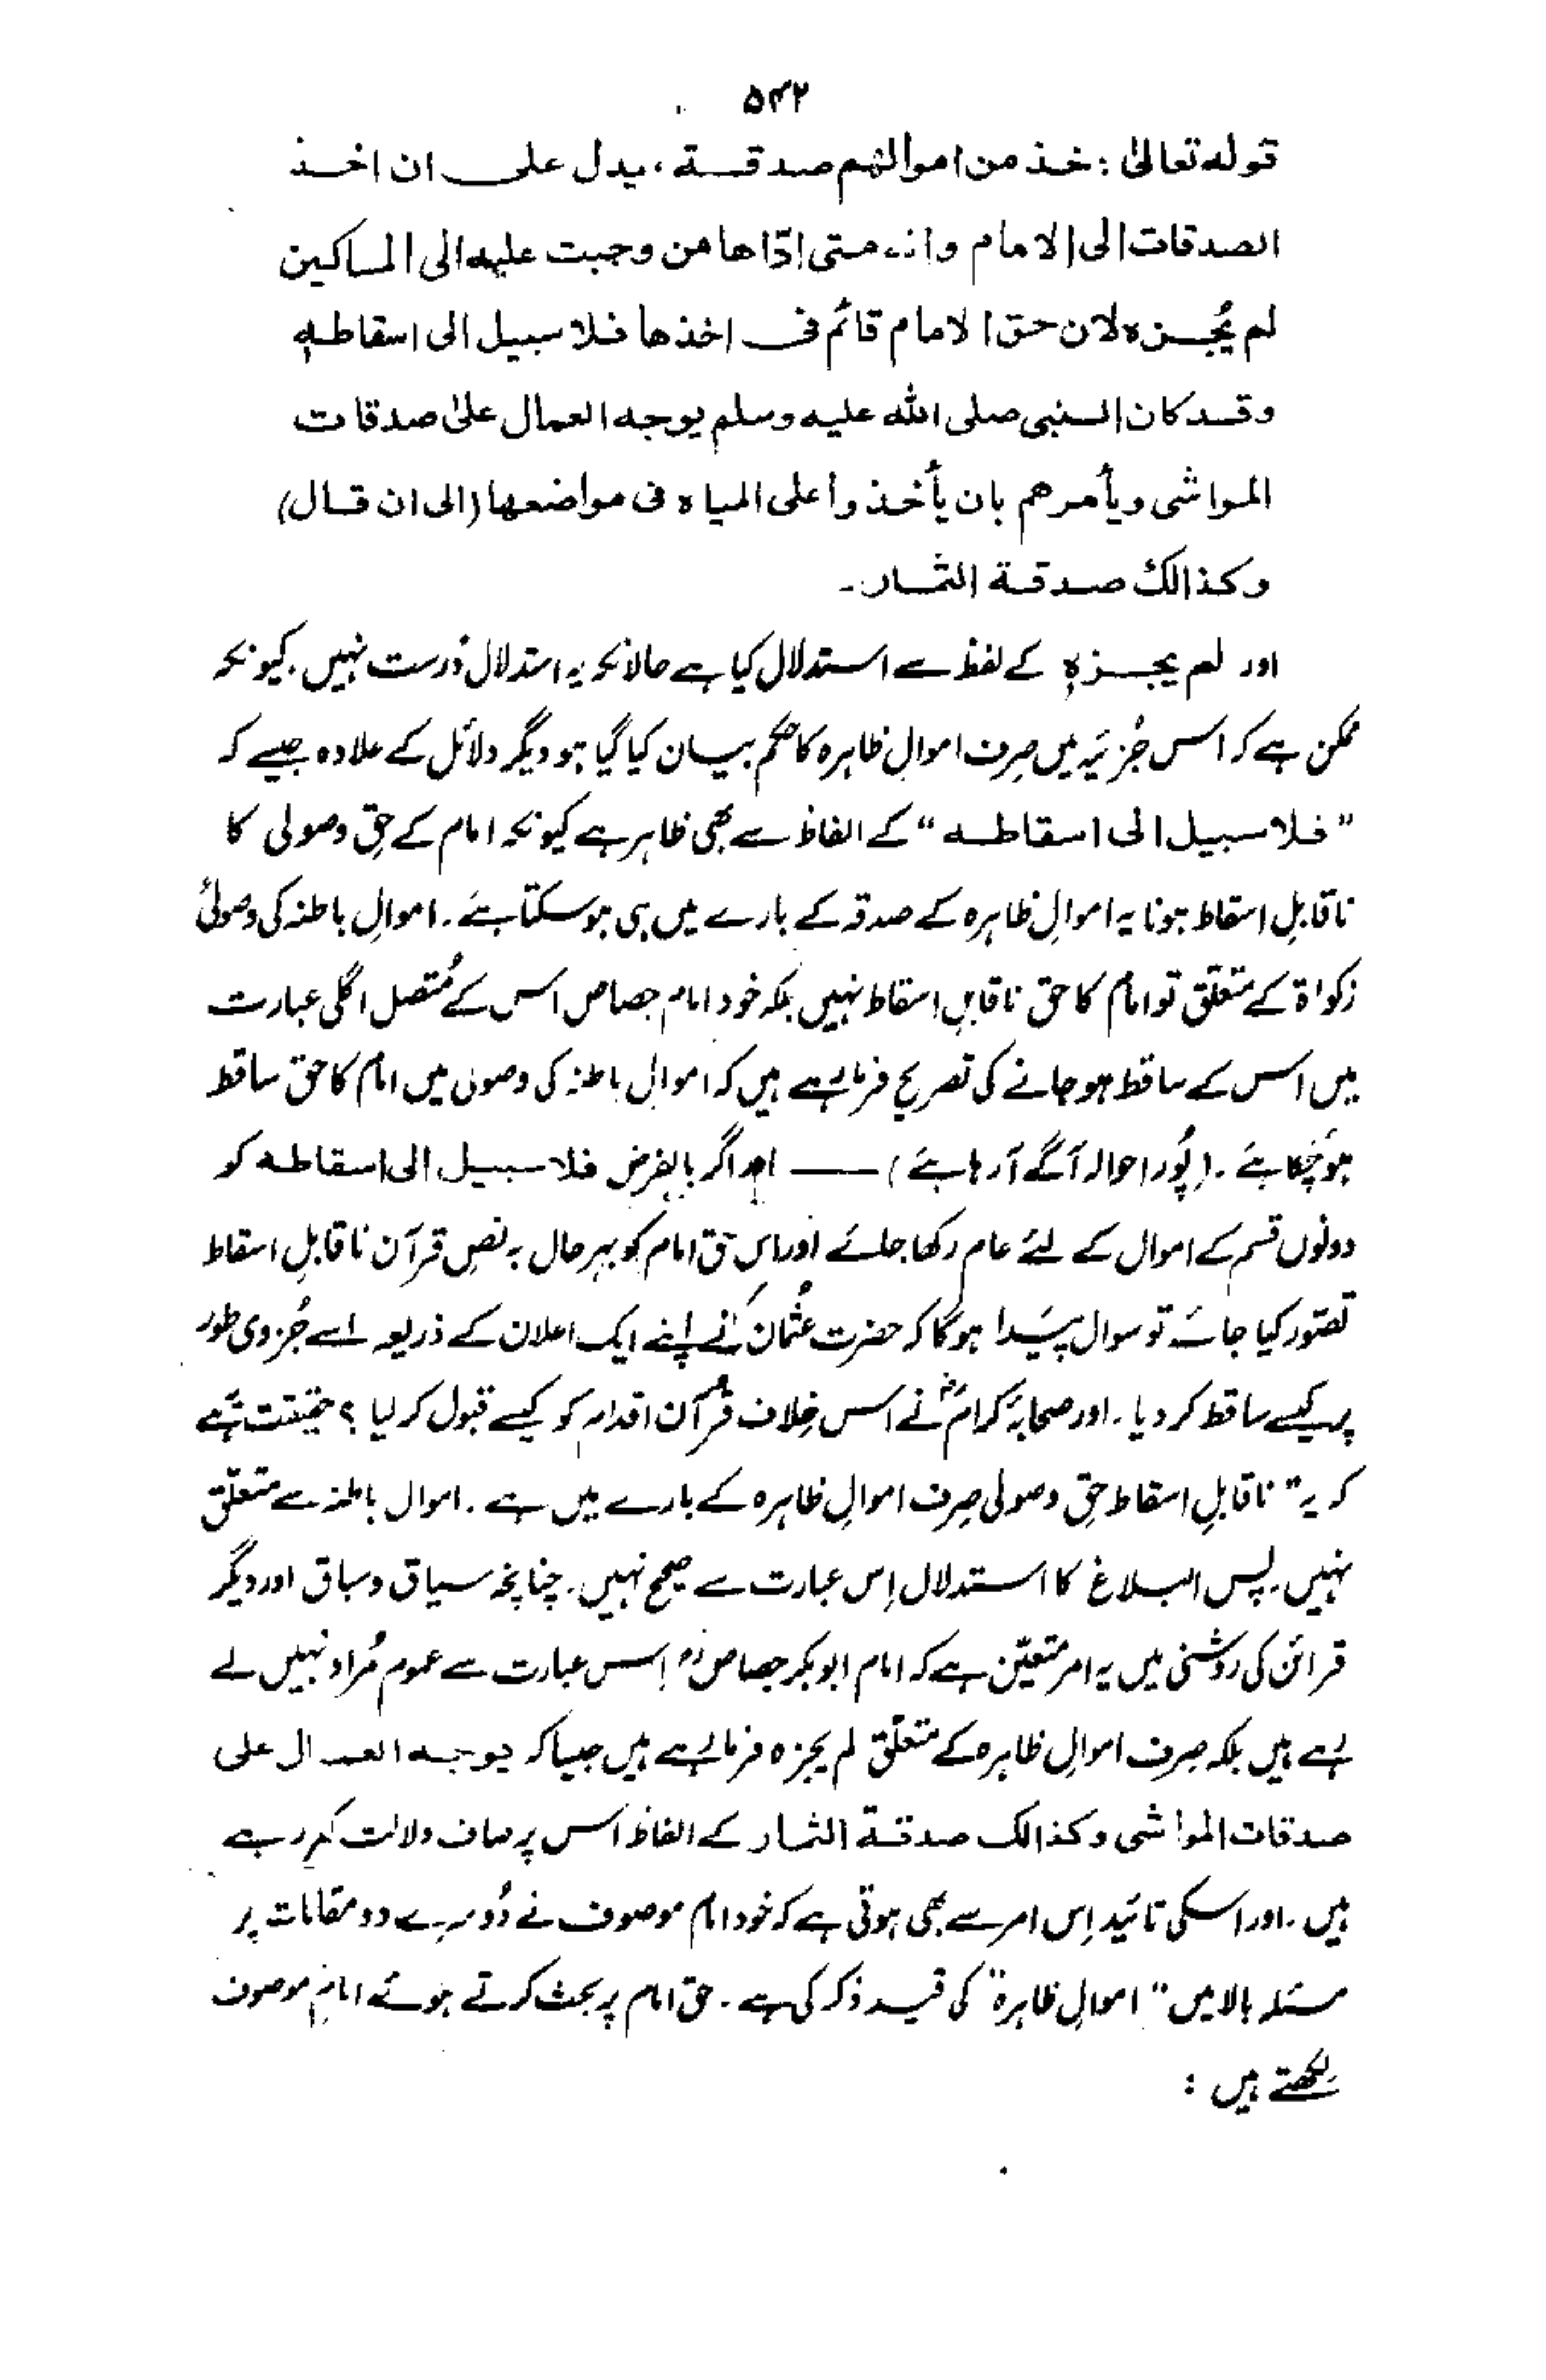 ۵۴۲
قوله تعالیٰ: خذ من اموالهم صدقة، يدل على ان اخذ
الصدقات الى الامام وانه متى ادّاها من وجبت عليه الى المساكين
لم يُجزه لان حق الامام قائم فى اخذها فلا سبيل الى اسقاطه
وقد كان النبى صلى الله عليه وسلم يوجه العمال علىٰ صدقات
المواشى ويأمرهم بان يأخذوا على المياه فى مواضعها (الى ان قال)
وكذالك صدقة الثمار۔
اور لم یجزہ کے لفظ سے استدلال کیا ہے حالانکہ یہ استدلال دُرست نہیں، کیونکہ
ممکن ہے کہ اس جُزئیہ میں صِرف اموالِ ظاہرہ کا حکم بیان کیا گیا ہو دیگر دلائل کے علاوہ جیسے کہ
"فلا سبیل الی اسقاطه" کے الفاظ سے بھی ظاہر ہے کیونکہ امام کے حقِ وصولی کا
ناقابلِ اسقاط ہونا یہ اموالِ ظاہرہ کے صدقہ کے بارے میں ہی ہو سکتا ہے۔ اموالِ باطنہ کی وصولیٔ
زکواۃ کے متعلق تو امام کا حق ناقابلِ اسقاط نہیں بلکہ خود امام جصاص اس کے مُتصل اگلی عبارت
میں اس کے ساقط ہو جانے کی تصریح فرما رہے ہیں کہ اموالِ باطنہ کی وصولی میں امام کا حق ساقط
ہو چُکا ہے۔ (پُورا حوالہ آگے آ رہا ہے) —— اور اگر بالفرض فلا سبیل الی اسقاطه کو
دونوں قسم کے اموال کے لئے عام رکھا جائے اور اِس حق امام کو بہرحال بہ نصِ قرآن ناقابلِ اسقاط
تصّور کیا جائے تو سوال پَیدا ہوگا کہ حضرت عُثمان نے اپنے ایک اعلان کے ذریعہ اسے جُزوی طور
پر کیسے ساقط کر دیا۔ اور صحابۂ کرامؓ نے اس خِلاف قرآن اقدام کو کیسے قبول کر لیا؟ حقیقت یہ ہے
کہ یہ "ناقابلِ اسقاط حقِ وصولی صِرف اموالِ ظاہرہ کے بارے میں ہے۔ اموال باطنہ سے متعلّق
نہیں۔ پس البلاغ کا استدلال اِس عبارت سے صحیح نہیں۔ چنانچہ سیاق و سباق اور دیگر
قرائن کی روشنی میں یہ امر متعیّن ہے کہ امام ابوبکر جصاصؒ اِس عبارت سے عموم مُراد نہیں لے
رہے ہیں بلکہ صِرف اموالِ ظاہرہ کے متعلّق لم یجزہ فرما رہے ہیں جیسا کہ یوجه العمال علی
صدقات المواشی وکذالک صدقة الثمار کے الفاظ اس پر صاف دلالت کر رہے
ہیں۔ اور اسکی تائید اِس امر سے بھی ہوتی ہے کہ خود امام موصوف نے دُوسرے دو مقامات پر
مسئلہ بالا میں "اموالِ ظاہرہ" کی قید ذکر کی ہے۔ حق امام پر بحث کرتے ہوئے امام موصوف
لکھتے ہیں: